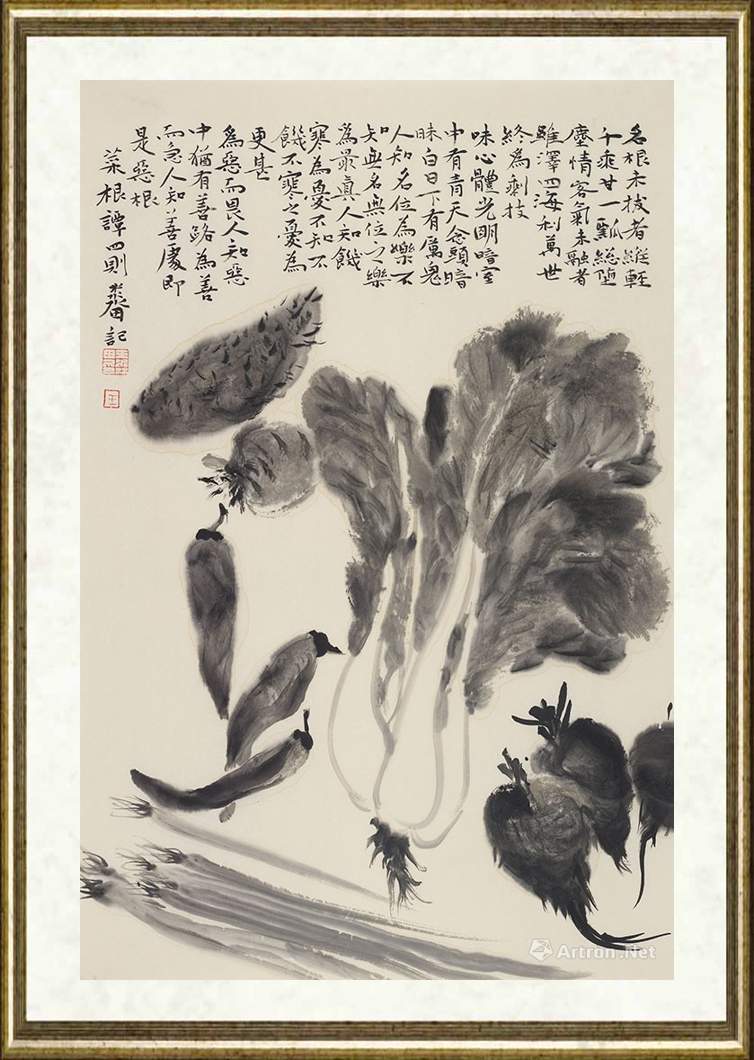 名根未拔者縱輕
千乘甘一瓢總墮
塵情客氣未融者
雖澤四海利萬世
終為剩技
味心體光明暗室
中有青天念頭暗
昧白日下有厲鬼
人知名位為樂不
知無名無位之樂
為最真人知饑
寒為憂不知不
饑不寒之憂為
更甚
為惡而畏人知惡
中猶有善路為善
而急人知善處即
是惡根
菜根譚四則 記
Artron.Net